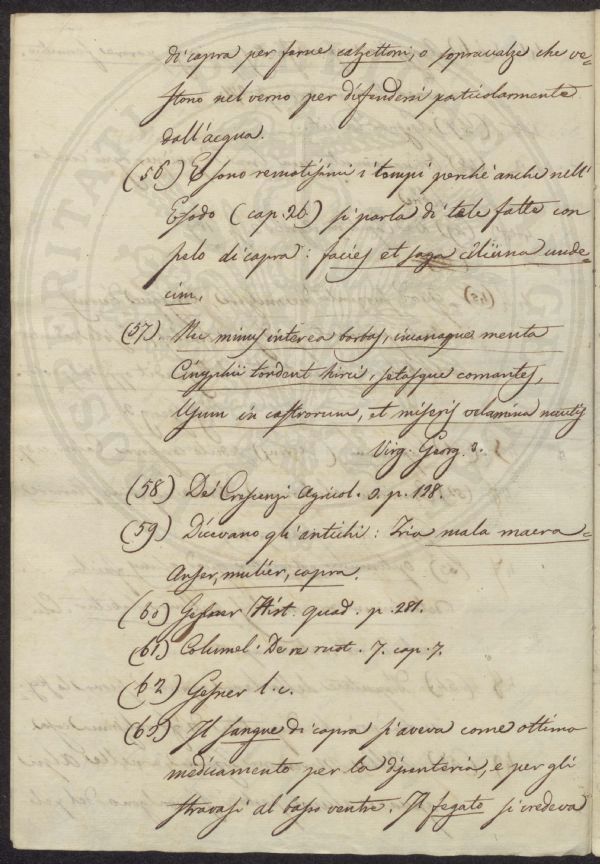 di capra per farne calzettoni, o sopracalze che ve-
stono nel verno per difendersi particolarmente
dall'acqua.
(56) E sono remotissimi i tempi perchè anche nell'
Esodo (cap. 26.) si parla di tele fatte con
pelo di capra: facies et saga cilicina unde-
cim.
(57). Nec minus interea barbas, incanaque menta
Cinyphii tondent hirci, setasque comantes,
Usum in castrorum, et miseris velamina nautis
Virg. Georg. 3.
(58) De' Crescenzi Agricol. 9. p. 198.
(59) Dicevano gli antichi: Tria mala macra =
Anser, mulier, capra.
(60) Gesner Hist. quad. p. 281.
(61) Columel. De re rust. 7. cap. 7.
(62) Gesner l. c.
(63) Il sangue di capra si aveva come ottimo
medicamento per la dissenteria, e per gli
stravasi al basso ventre. Il fegato si credeva